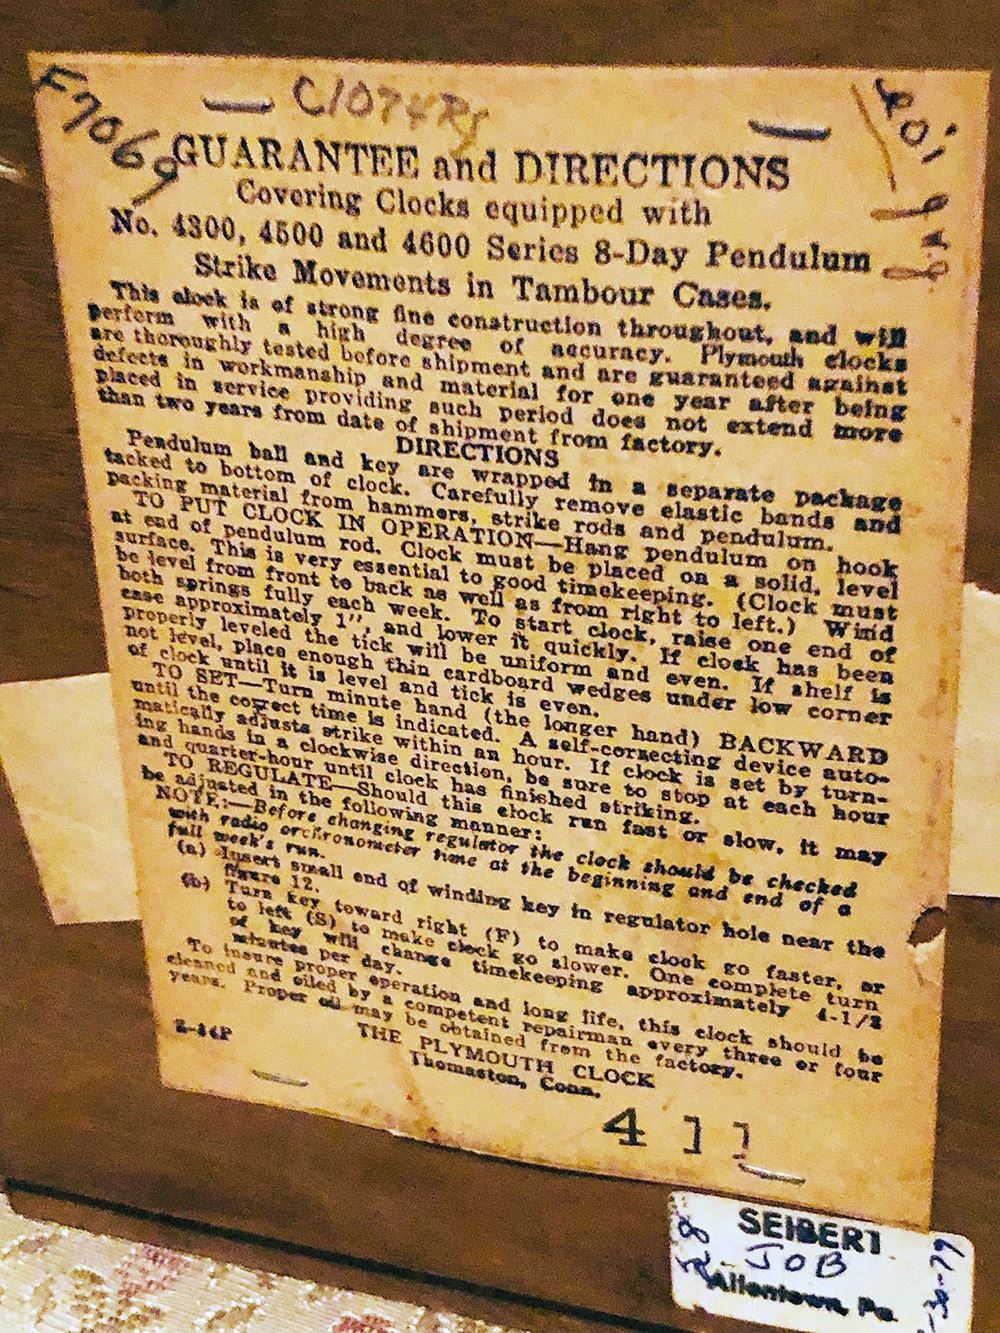 F7069
C1074Rs
GUARANTEE and DIRECTIONS
Covering Clocks equipped with
No. 4300, 4500 and 4600 Series 8-Day Pendulum
Strike Movements in Tambour Cases.
This clock is of strong fine construction throughout, and will
perform with a high degree of accuracy. Plymouth clocks
are thoroughly tested before shipment and are guaranteed against
defects in workmanship and material for one year after being
placed in service providing such period does not extend more
than two years from date of shipment from factory.
DIRECTIONS
Pendulum ball and key are wrapped in a separate package
tacked to bottom of clock. Carefully remove elastic bands and
packing material from hammers, strike rods and pendulum.
TO PUT CLOCK IN OPERATION—Hang pendulum on hook
at end of pendulum rod. Clock must be placed on a solid, level
surface. This is very essential to good timekeeping. (Clock must
be level from front to back as well as from right to left.) Wind
both springs fully each week. To start clock, raise one end of
case approximately 1", and lower it quickly. If clock has been
properly leveled the tick will be uniform and even. If shelf is
not level, place enough thin cardboard wedges under low corner
of clock until it is level and tick is even.
TO SET—Turn minute hand (the longer hand) BACKWARD
until the correct time is indicated. A self-correcting device auto-
matically adjusts strike within an hour. If clock is set by turn-
ing hands in a clockwise direction, be sure to stop at each hour
and quarter-hour until clock has finished striking.
TO REGULATE—Should this clock run fast or slow, it may
be adjusted in the following manner:
NOTE:—Before changing regulator the clock should be checked
with radio or chronometer time at the beginning and end of a
full week's run.
(a) Insert small end of winding key in regulator hole near the
figure 12.
(b) Turn key toward right (F) to make clock go faster, or
to left (S) to make clock go slower. One complete turn
of key will change timekeeping approximately 4-1/2
minutes per day.
To insure proper operation and long life, this clock should be
cleaned and oiled by a competent repairman every three or four
years. Proper oil may be obtained from the factory.
THE PLYMOUTH CLOCK
Thomaston, Conn.
2-44P
411
SEIBERT
JOB
Allentown, Pa